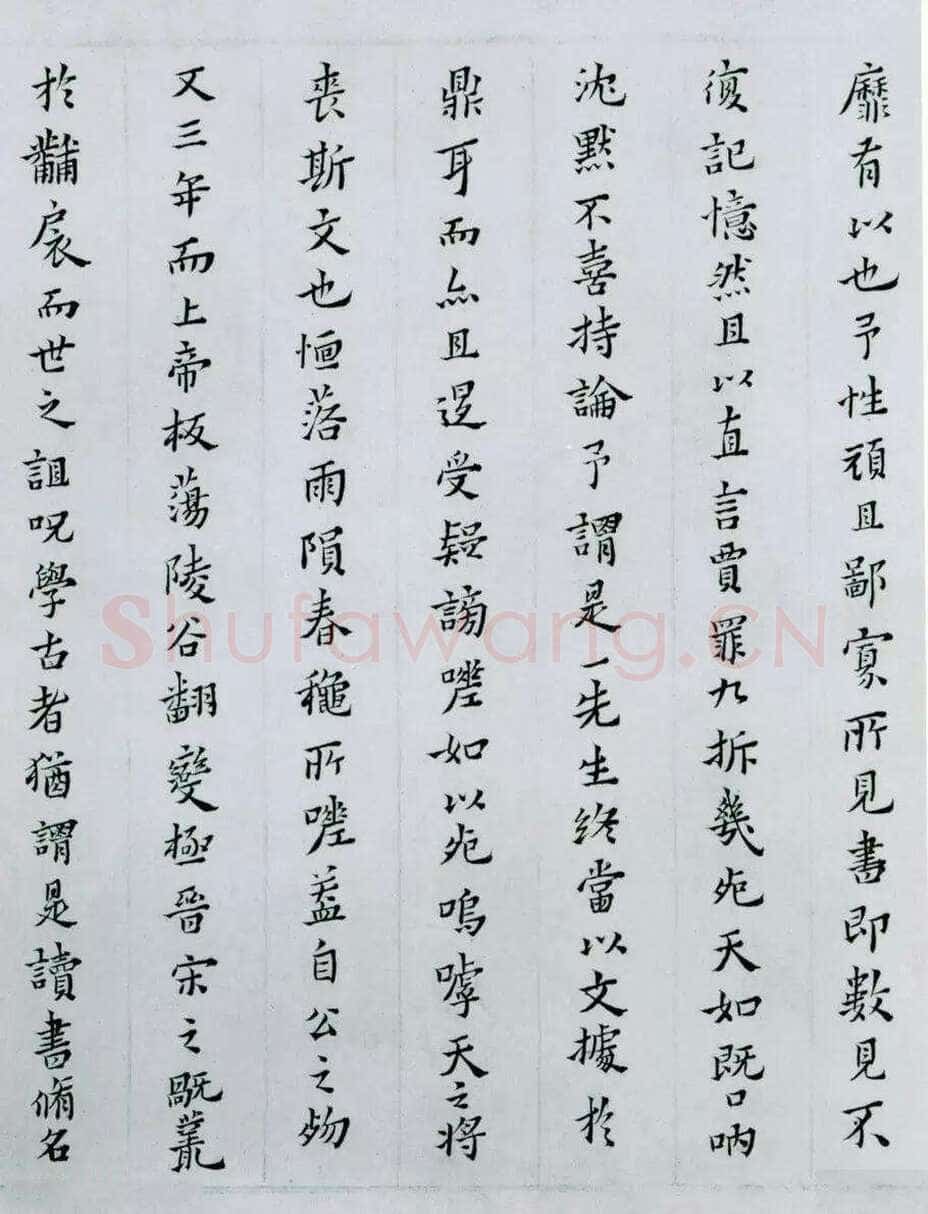 靡有以也予性頑且鄙寡所見書即數見不
復記憶然且以直言賈罪九折幾死天如既口吶
沈默不喜持論予謂是一先生終當以文據於
鼎耳而亦且遝受疑謗嘅如以死嗚嘑天之將
喪斯文也恒落雨隕春穐所嘅蓋自公之歾
又三年而上帝板蕩陵谷翻變極晉宋之
於黼扆而世之詛呪學古者猶謂是讀書脩名
Shufawang.CN